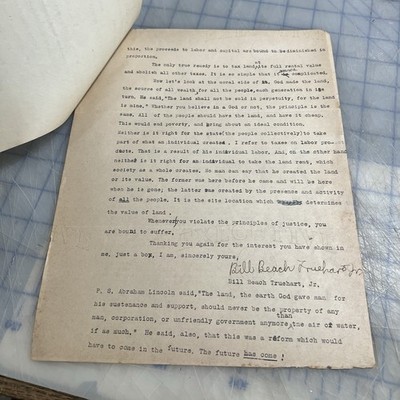 this, the proceeds to labor and capital are bound to be diminished in
proportion.
The only true remedy is to tax land at its full rental value
and abolish all other taxes. It is so simple that it seems complicated.
Now let's look at the moral side of it. God made the land,
the source of all wealth, for all the people, each generation in its
turn. He said, "The land shall not be sold in perpetuity, for the land
is mine." Whether you believe in a God or not, the principle is the
same. All of the people should have the land, and have it cheap.
This would end poverty, and bring about an ideal condition.
Neither is it right for the state (the people collectively) to take
part of what an individual creates. I refer to taxes on labor pro-
ducts. That is a result of his individual labor. And, on the other hand
neither is it right for an individual to take the land rent, which
society as a whole creates. No man can say that he created the land
or its value. The former was here before he came and will be here
when he is gone; the latter was created by the presence and activity
of all the people. It is the site location which determines
the value of land.
Whenever you violate the principles of justice, you
are bound to suffer.
Thanking you again for the interest you have shown in
me, just a boy, I am, sincerely yours,
Bill Beach Truehart, Jr.
Bill Beach Truehart, Jr.
P. S. Abraham Lincoln said, "The land, the earth God gave man for
his sustenance and support, should never be the property of any
man, corporation, or unfriendly government anymore than the air or water,
if as much." He said, also, that this was a reform which would
have to come in the future. The future has come!